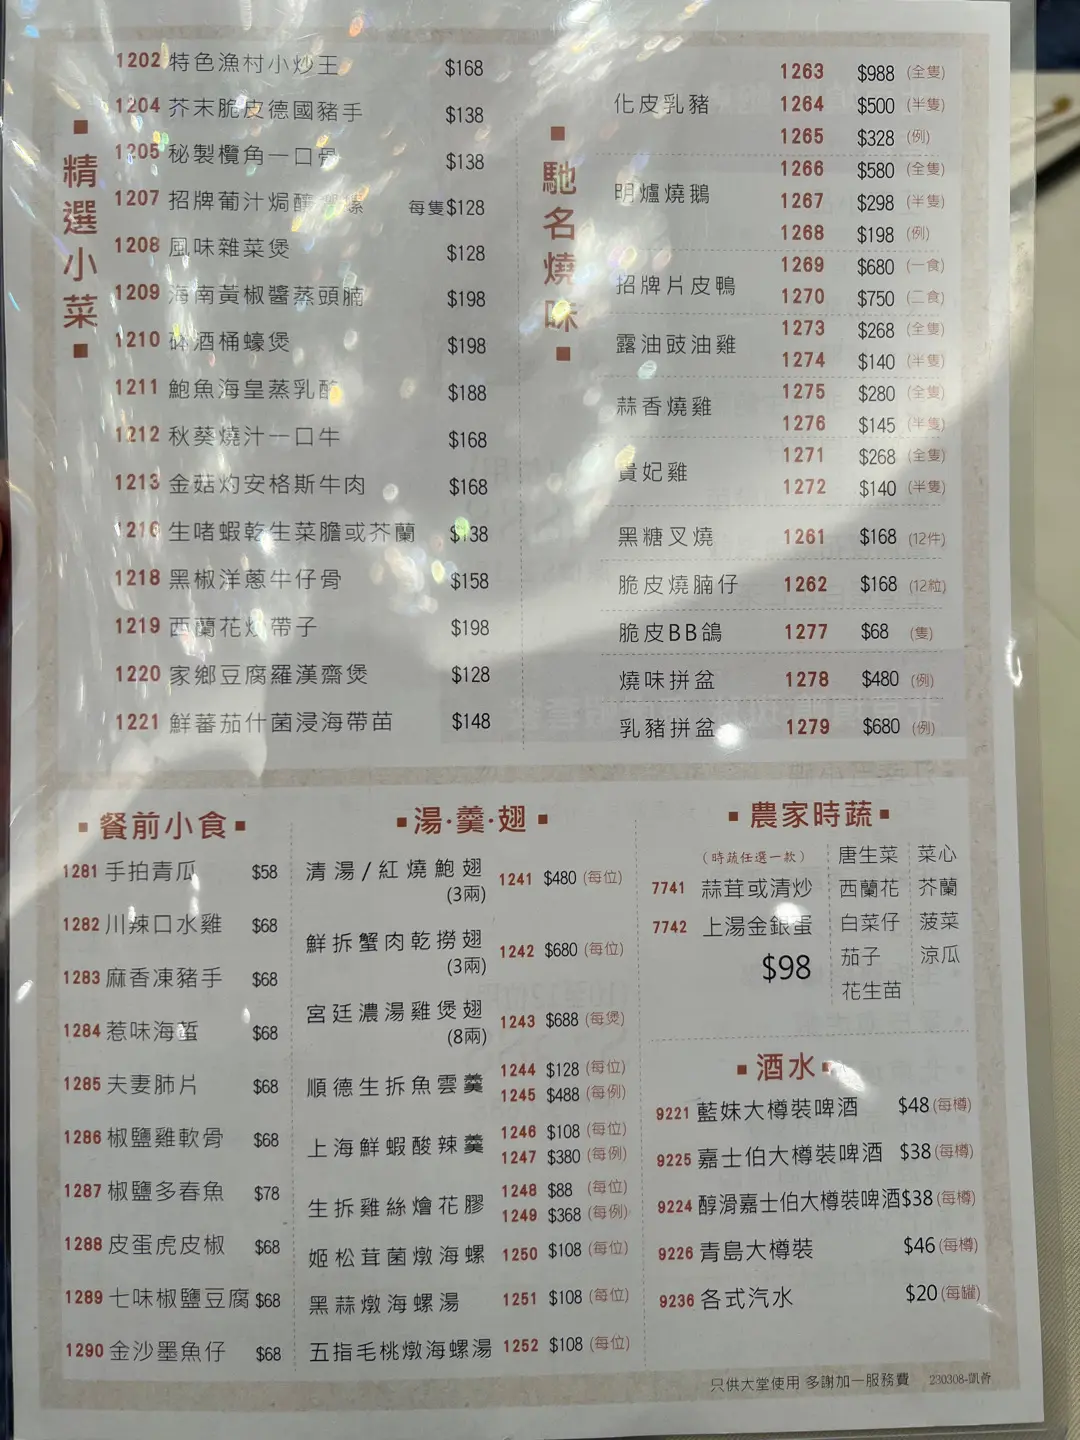 精選小菜
1202 特色漁村小炒王 $168
1204 芥末脆皮德國豬手 $138
1205 秘製欖角一口骨 $138
1207 招牌葡汁焗釀響螺 每隻$128
1208 風味雜菜煲 $128
1209 海南黃椒醬蒸頭腩 $198
1210 砵酒桶蠔煲 $198
1211 鮑魚海皇蒸乳酪 $188
1212 秋葵燒汁一口牛 $168
1213 金菇灼安格斯牛肉 $168
1216 生啫蝦乾生菜膽或芥蘭 $138
1218 黑椒洋蔥牛仔骨 $158
1219 西蘭花炒帶子 $198
1220 家鄉豆腐羅漢齋煲 $128
1221 鮮蕃茄什菌浸海帶苗 $148
馳名燒味
化皮乳豬
1263 $988 (全隻)
1264 $500 (半隻)
1265 $328 (例)
明爐燒鵝
1266 $580 (全隻)
1267 $298 (半隻)
1268 $198 (例)
招牌片皮鴨
1269 $680 (一食)
1270 $750 (二食)
露油豉油雞
1273 $268 (全隻)
1274 $140 (半隻)
蒜香燒雞
1275 $280 (全隻)
1276 $145 (半隻)
貴妃雞
1271 $268 (全隻)
1272 $140 (半隻)
黑糖叉燒 1261 $168 (12件)
脆皮燒腩仔 1262 $168 (12粒)
脆皮BB鴿 1277 $68 (隻)
燒味拼盆 1278 $480 (例)
乳豬拼盆 1279 $680 (例)
餐前小食
1281 手拍青瓜 $58
1282 川辣口水雞 $68
1283 麻香凍豬手 $68
1284 惹味海蜇 $68
1285 夫妻肺片 $68
1286 椒鹽雞軟骨 $68
1287 椒鹽多春魚 $78
1288 皮蛋虎皮椒 $68
1289 七味椒鹽豆腐 $68
1290 金沙墨魚仔 $68
湯·羹·翅
清湯/紅燒鮑翅 1241 $480 (每位)
(3兩)
鮮拆蟹肉乾撈翅 1242 $680 (每位)
(3兩)
宮廷濃湯雞煲翅 1243 $688 (每煲)
(8兩)
順德生拆魚雲羹
1244 $128 (每位)
1245 $488 (每例)
上海鮮蝦酸辣羹
1246 $108 (每位)
1247 $380 (每例)
生拆雞絲燴花膠
1248 $88 (每位)
1249 $368 (每例)
姬松茸菌燉海螺 1250 $108 (每位)
黑蒜燉海螺湯 1251 $108 (每位)
五指毛桃燉海螺湯 1252 $108 (每位)
農家時蔬
(時蔬任選一款)
7741 蒜茸或清炒
7742 上湯金銀蛋
$98
唐生菜 菜心
西蘭花 芥蘭
白菜仔 菠菜
茄子 涼瓜
花生苗
酒水
9221 藍妹大樽裝啤酒 $48 (每樽)
9225 嘉士伯大樽裝啤酒 $38 (每樽)
9224 醇滑嘉士伯大樽裝啤酒 $38 (每樽)
9226 青島大樽裝 $46 (每樽)
9236 各式汽水 $20 (每罐)
只供大堂使用 多謝加一服務費 230308-凱薈